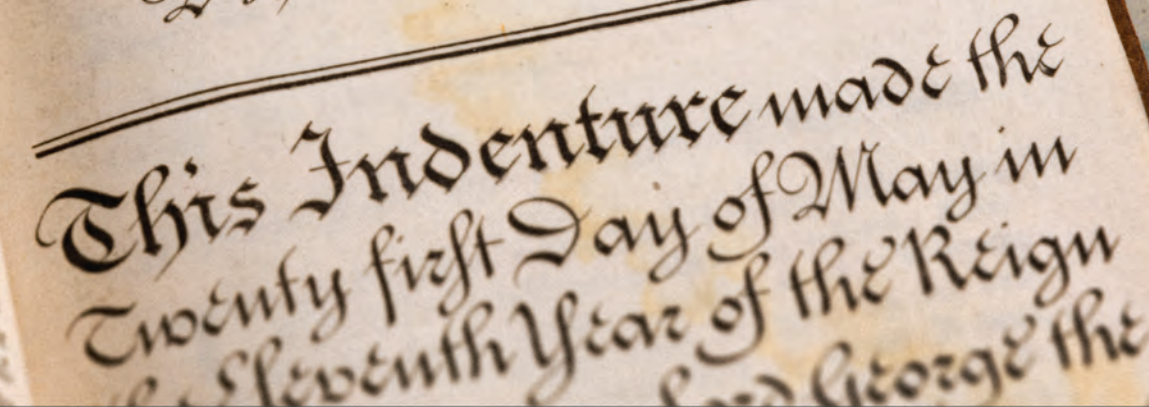 This Indenture made the
Twenty first Day of May in
the Eleventh Year of the Reign
Lord George the